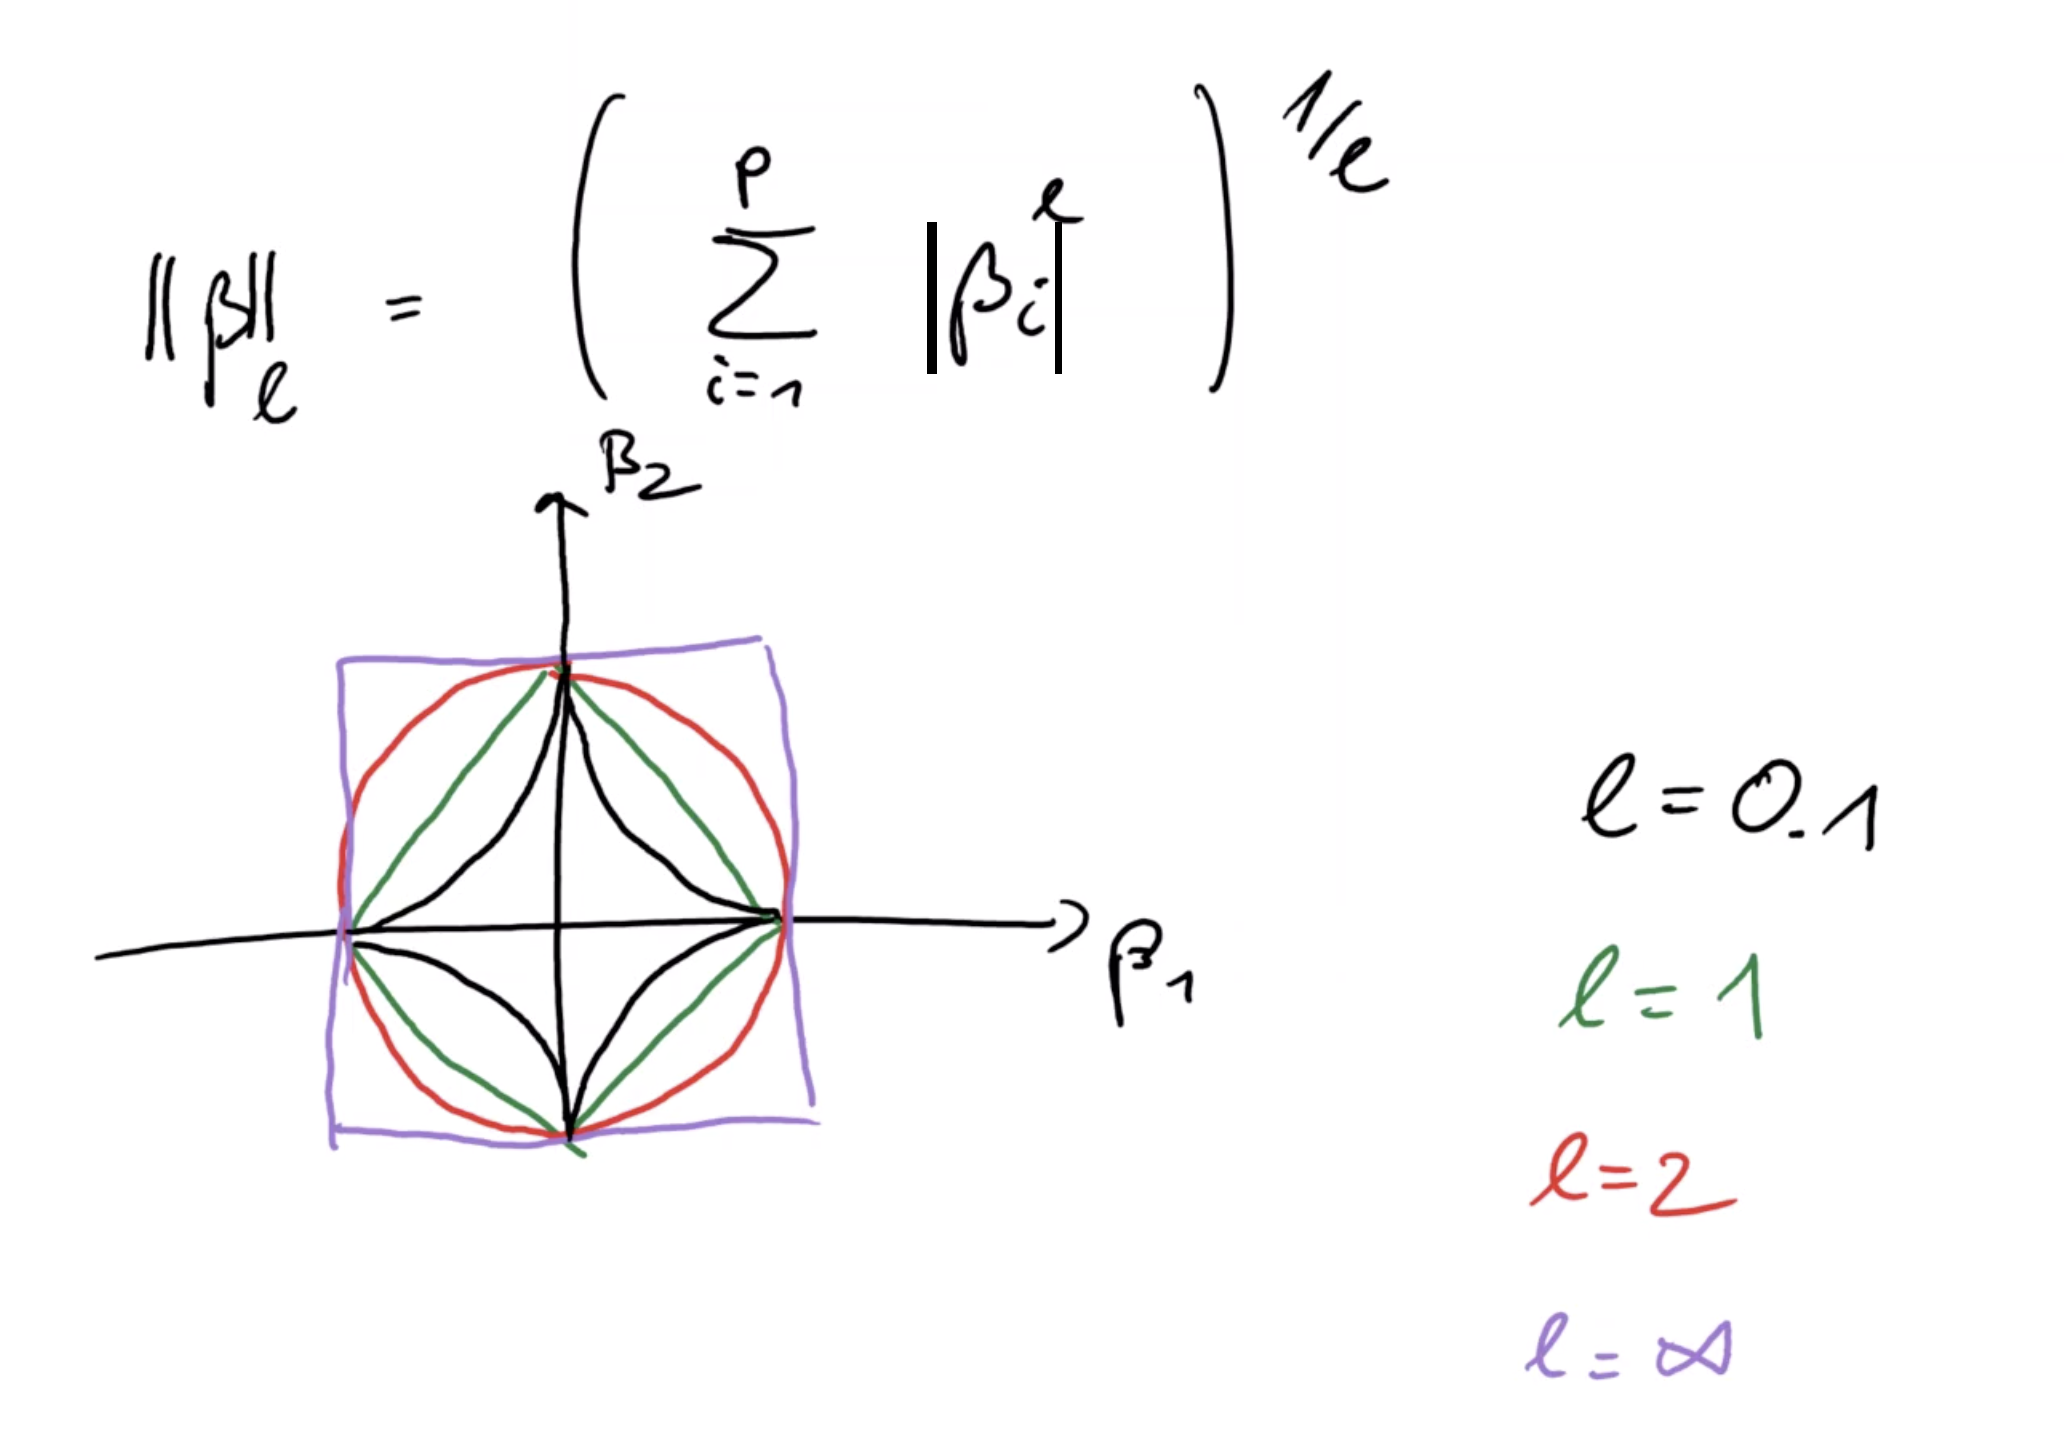 ‖β‖ℓ = ( p ∑ i=1 |βi|ℓ ) 1/ℓ
β2
β1
ℓ = 0.1
ℓ = 1
ℓ = 2
ℓ = ∞